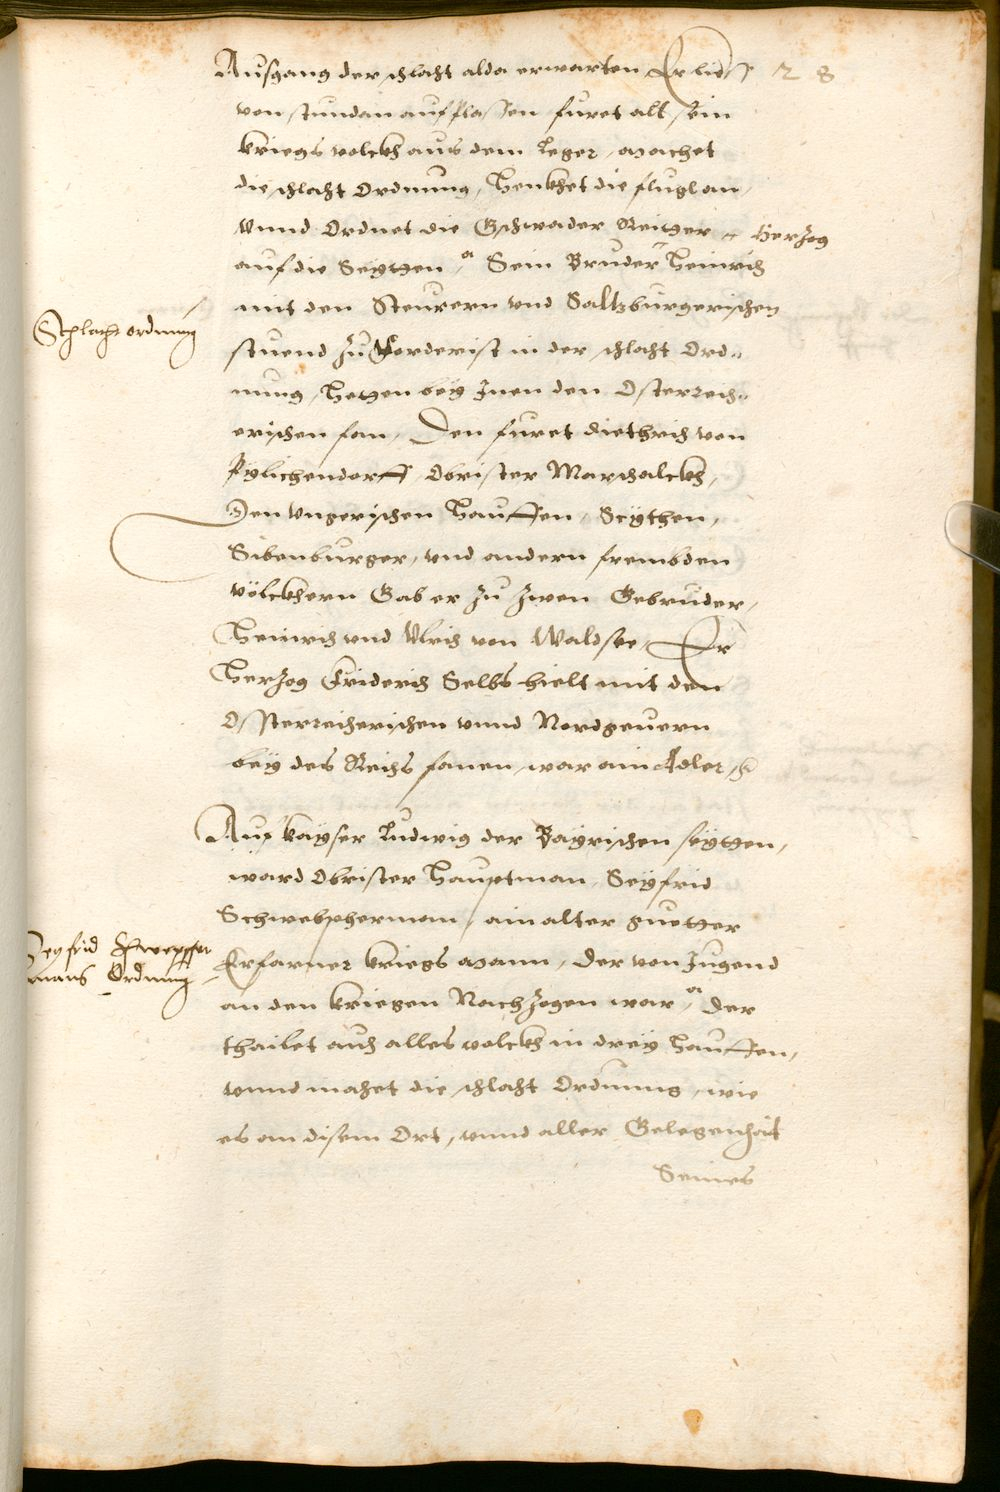 28
Ausgang der schlacht alda erwarten Er ließ
von stundan auf flassen furet alt sein
kriegs volckh aus dem leger, machet
die schlacht Ordnung, Henkhet die flugl an,
Vnnd Ordnet die Gschwader Reitger
auf die Seytten, Sein Bruder Herzog Heinrich
mit den Steurern vnd Saltzburgerischen
Schlacht ordnung
stuend zu Forderist in der schlacht Ord„
nung, Hetten bey Inen den Osterreich„
erischen fan, Den furet diethrich von
Pylichendorff Obrister Marschalckh,
Den vngerischen Hauffen, Scythen,
Sibenburger, vnd andern frembden
völckhern Gab er zu zwen Gebruder,
Heinrich vnd Vlrich von Waldsee, Er
Herzog Friderich Selbs hielt mit den
Ossterreicherischen vnnd Nordgeuern
bey des Reichs fanen, war ain Adler,
Auf kayser Ludwig der Bayrischen seytten,
ward Obrister Hauptman, Seyfrid
Schwebpherman, ain alter guetter
Seyfrid Schwepffer
mans Ordnung
Erfarner kriegs mann, der von Jugend
an den kriegen Nach zogen war, der
thailet auch alles volckh in drey Hauffen,
vnnd machet die schlacht Ordnung, wie
es an disem Ort, vnnd aller Gelegenhait
Seines